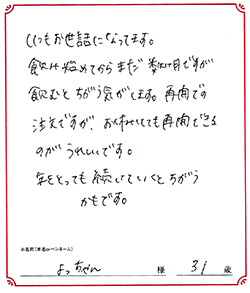 いつもお世話になってます。
飲み始めてからまだ数ヶ月ですが
飲むとちがう気がします。再開での
注文ですが、お休みしても再開できる
のがうれしいです。
年をとっても続けていくとちがう
かもです。
お名前(本名orペンネーム)
よっちゃん 様 31 歳